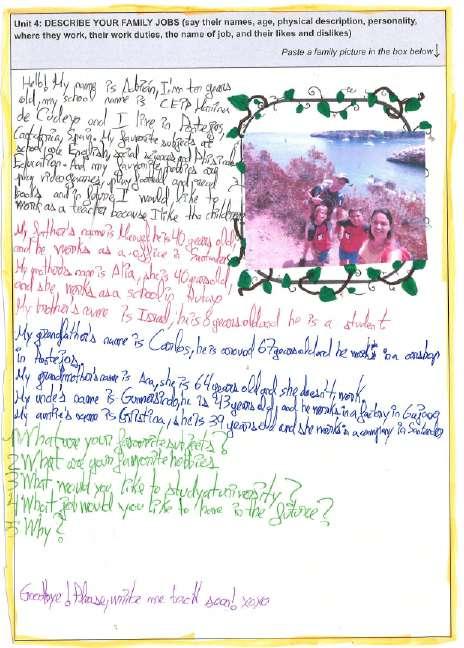 Unit 4: DESCRIBE YOUR FAMILY JOBS (say their names, age, physical description, personality,
where they work, their work duties, the name of job, and their likes and dislikes)
Paste a family picture in the box below↓
Hello! My name is Adrián, I'm ten years
old, my school name is CEIP
de Cudeyo and I live in
Cantabria, Spain. My favorite subjects at
school are English, social sciences and Physical
Education. And my favorite hobbies are
play videogames, play football and read
books and in future I would like to
work as a teacher because I like the children
My father's name is Manuel he is 40 years old,
and he works as a office in Santander
My mother's name is she is 40 years old,
and she, works as a school in
My brother's name is Israel, he is 8 years old and he is a student
My grandfather's name is Carlos, he is around 67 years old and he works in a
in
My grandmother's name is Ana, she is 64 years old and she doesn't, work,
My uncle's name is he is 43 years old, and he works in a factory in
My auntie's name is Cristina, she is 39 years old and she works in a company in Santander
1 What are your favorite subjects?
2 What are your favorite hobbies
3 What would you like to study at university?
4 What job would you like to have in the future?
5 Why?
Goodbye! Please, write me back soon! xoxo